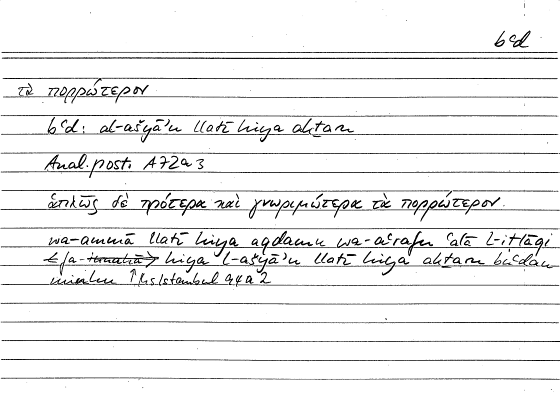 bʿd
τὰ πορρώτερον
bʿd: al-ašyāʾu llatī hiya akṯaru
Anal. post. A 72a3
ἁπλῶς δὲ πρότερα καὶ γνωριμώτερα τὰ πορρώτερον.
wa-ammā llatī hiya aqdamu wa-aʿrafu ʿalā l-iṭlāqi
hiya l-ašyāʾu llatī hiya akṯaru buʿdan
minhu ↑ Hs Istanbul 94a2